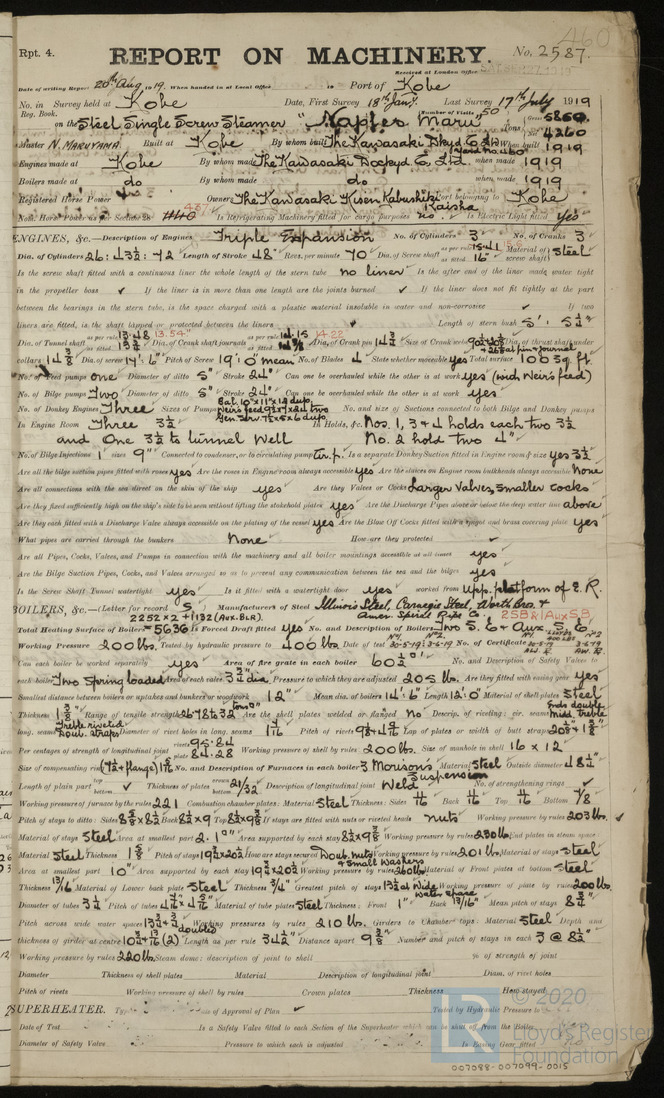 Rpt. 4.
REPORT ON MACHINERY.
No. 2587.
Received at London Office
Date of writing Report 20th Aug 1919. When handed in at Local Office 19 Port of Kobe
No. in Survey held at Kobe Date, First Survey 18th Jany. Last Survey 17th July 1919
Reg. Book. (Number of Visits 50
on the Steel Single Screw Steamer "Naples Maru" Tons Gross 5860 Net 4260
Master N. Maruyama Built at Kobe By whom built The Kawasaki Dkyd Co Ltd When built 1919
Engines made at Kobe By whom made The Kawasaki Dockyd Co. Ltd. when made 1919
Boilers made at do By whom made do when made 1919
Registered Horse Power Owners The Kawasaki Kisen Kabushiki Kaisha Port belonging to Kobe
Nom. Horse Power as per Section 28 Is Refrigerating Machinery fitted for cargo purposes no. Is Electric Light fitted Yes
ENGINES, &c.—Description of Engines Triple Expansion No. of Cylinders 3 No. of Cranks 3
Dia. of Cylinders 26 : 43½ : 72 Length of Stroke 48" Revs. per minute 70 Dia. of Screw shaft as per rule 15.41 as fitted 16" Material of screw shaft steel
Is the screw shaft fitted with a continuous liner the whole length of the stern tube no liner Is the after end of the liner made water tight
in the propeller boss If the liner is in more than one length are the joints burned If the liner does not fit tightly at the part
between the bearings in the stern tube, is the space charged with a plastic material insoluble in water and non-corrosive If two
liners are fitted, is the shaft lapped or protected between the liners Length of stern bush 5' . 5¼"
Dia. of Tunnel shaft as per rule 13.48 Dia. of Crank shaft journals as per rule 14.15 Dia. of Crank pin 14¾ Size of Crank webs Dia. of thrust shaft under
collars 14¾ Dia. of screw 17'. 6" Pitch of Screw 19'. 0" mean No. of Blades 4 State whether moveable yes Total surface 100 sq. ft.
No. of Feed pumps one Diameter of ditto 5" Stroke 24" Can one be overhauled while the other is at work yes (with Weir's feed)
No. of Bilge pumps Two Diameter of ditto 5" Stroke 24" Can one be overhauled while the other is at work yes
No. of Donkey Engines Three Sizes of Pumps Bal. 10"x11"x12 dup. No. and size of Suctions connected to both Bilge and Donkey pumps
In Engine Room Three 3½ In Holds, &c. Nos. 1, 3 & 4 holds each two 3½
and One 3½ to tunnel well No. 2 hold two 4"
No. of Bilge Injections 1 sizes 9" Connected to condenser, or to circulating pump cir. p. Is a separate Donkey Suction fitted in Engine room & size yes 3½
Are all the bilge suction pipes fitted with roses yes Are the roses in Engine room always accessible yes Are the sluices on Engine room bulkheads always accessible None
Are all connections with the sea direct on the skin of the ship yes Are they Valves or Cocks Larger Valves, smaller cocks
Are they fixed sufficiently high on the ship's side to be seen without lifting the stokehold plates yes Are the Discharge Pipes above or below the deep water line above
Are they each fitted with a Discharge Valve always accessible on the plating of the vessel yes Are the Blow Off Cocks fitted with a spigot and brass covering plate yes
What pipes are carried through the bunkers None How are they protected
Are all Pipes, Cocks, Valves, and Pumps in connection with the machinery and all boiler mountings accessible at all times yes
Are the Bilge Suction Pipes, Cocks, and Valves arranged so as to prevent any communication between the sea and the bilges yes
Is the Screw Shaft Tunnel watertight yes Is it fitted with a watertight door yes worked from upp. platform of E. R.
BOILERS, &c.—(Letter for record S Manufacturers of Steel Illinois Steel, Carnegie Steel, Worth Bros. &
2252 x 2 + 1132 (Aux. BLR) 2SB & 1 Aux SB
Total Heating Surface of Boilers = 5636 Is Forced Draft fitted yes No. and Description of Boilers Two S. E. & Aux. S. E.
Working Pressure 200 lbs. Tested by hydraulic pressure to 400 lbs Date of test No. of Certificate
Can each boiler be worked separately yes Area of fire grate in each boiler 60½ □' No. and Description of Safety Valves to
each boiler Two Spring loaded Area of each valve 3¾ dia Pressure to which they are adjusted 205 lbs. Are they fitted with easing gear yes
Smallest distance between boilers or uptakes and bunkers or woodwork 12" Mean dia. of boilers 14'. 6" Length 12'. 0" Material of shell plates Steel
Thickness Range of tensile strength 26.78 to 32 tons Are the shell plates welded or flanged no Descrip. of riveting: cir. seams Ends double Midd. treble
long. seams Treble riveted Doub. straps Diameter of rivet holes in long. seams Pitch of rivets Lap of plates or width of butt straps
Per centages of strength of longitudinal joint rivets 95.84 plate 84.28 Working pressure of shell by rules 200 lbs. Size of manhole in shell 16 x 12
Size of compensating ring No. and Description of Furnaces in each boiler 3 Morison's Suspension Material steel Outside diameter 48½"
Length of plain part top bottom Thickness of plates 21/32 Description of longitudinal joint Weld No. of strengthening rings
Working pressure of furnace by the rules 221 Combustion chamber plates: Material Steel Thickness: Sides 11/16 Back 11/16 Top 11/16 Bottom 7/8
Pitch of stays to ditto: Sides Back 8½ x 9 Top If stays are fitted with nuts or riveted heads nuts Working pressure by rules 203 lbs.
Material of stays steel Area at smallest part Area supported by each stay Working pressure by rules 230 lbs End plates in steam space
Material steel Thickness Pitch of stays How are stays secured Doub. nuts & small washers Working pressure by rules 201 lbs. Material of stays steel
Area at smallest part 10" Area supported by each stay Working pressure by rules Material of Front plates at bottom steel
Thickness 13/16 Material of Lower back plate steel Thickness ¾" Greatest pitch of stays Working pressure of plate by rules 200 lbs.
Diameter of tubes 3¼ Pitch of tubes Material of tube plates steel Thickness: Front 1" Back 13/16" Mean pitch of stays
Pitch across wide water spaces Working pressures by rules 210 lbs. Girders to Chamber tops: Material steel Depth and
thickness of girder at centre Length as per rule 34½" Distance apart Number and pitch of stays in each 3 @ 8½"
Working pressure by rules 220 lbs Steam dome: description of joint to shell % of strength of joint
Diameter Thickness of shell plates Material Description of longitudinal joint Diam. of rivet holes
Pitch of rivets Working pressure of shell by rules Crown plates Thickness How stayed
SUPERHEATER. Type Date of Approval of Plan Tested by Hydraulic Pressure to
Date of Test Is a Safety Valve fitted to each Section of the Superheater which can be shut off from the Boiler
Diameter of Safety Valve Pressure to which each is adjusted Is Easing Gear fitted
© 2020
LR
Lloyd's Register
Foundation
007088-007099-0015